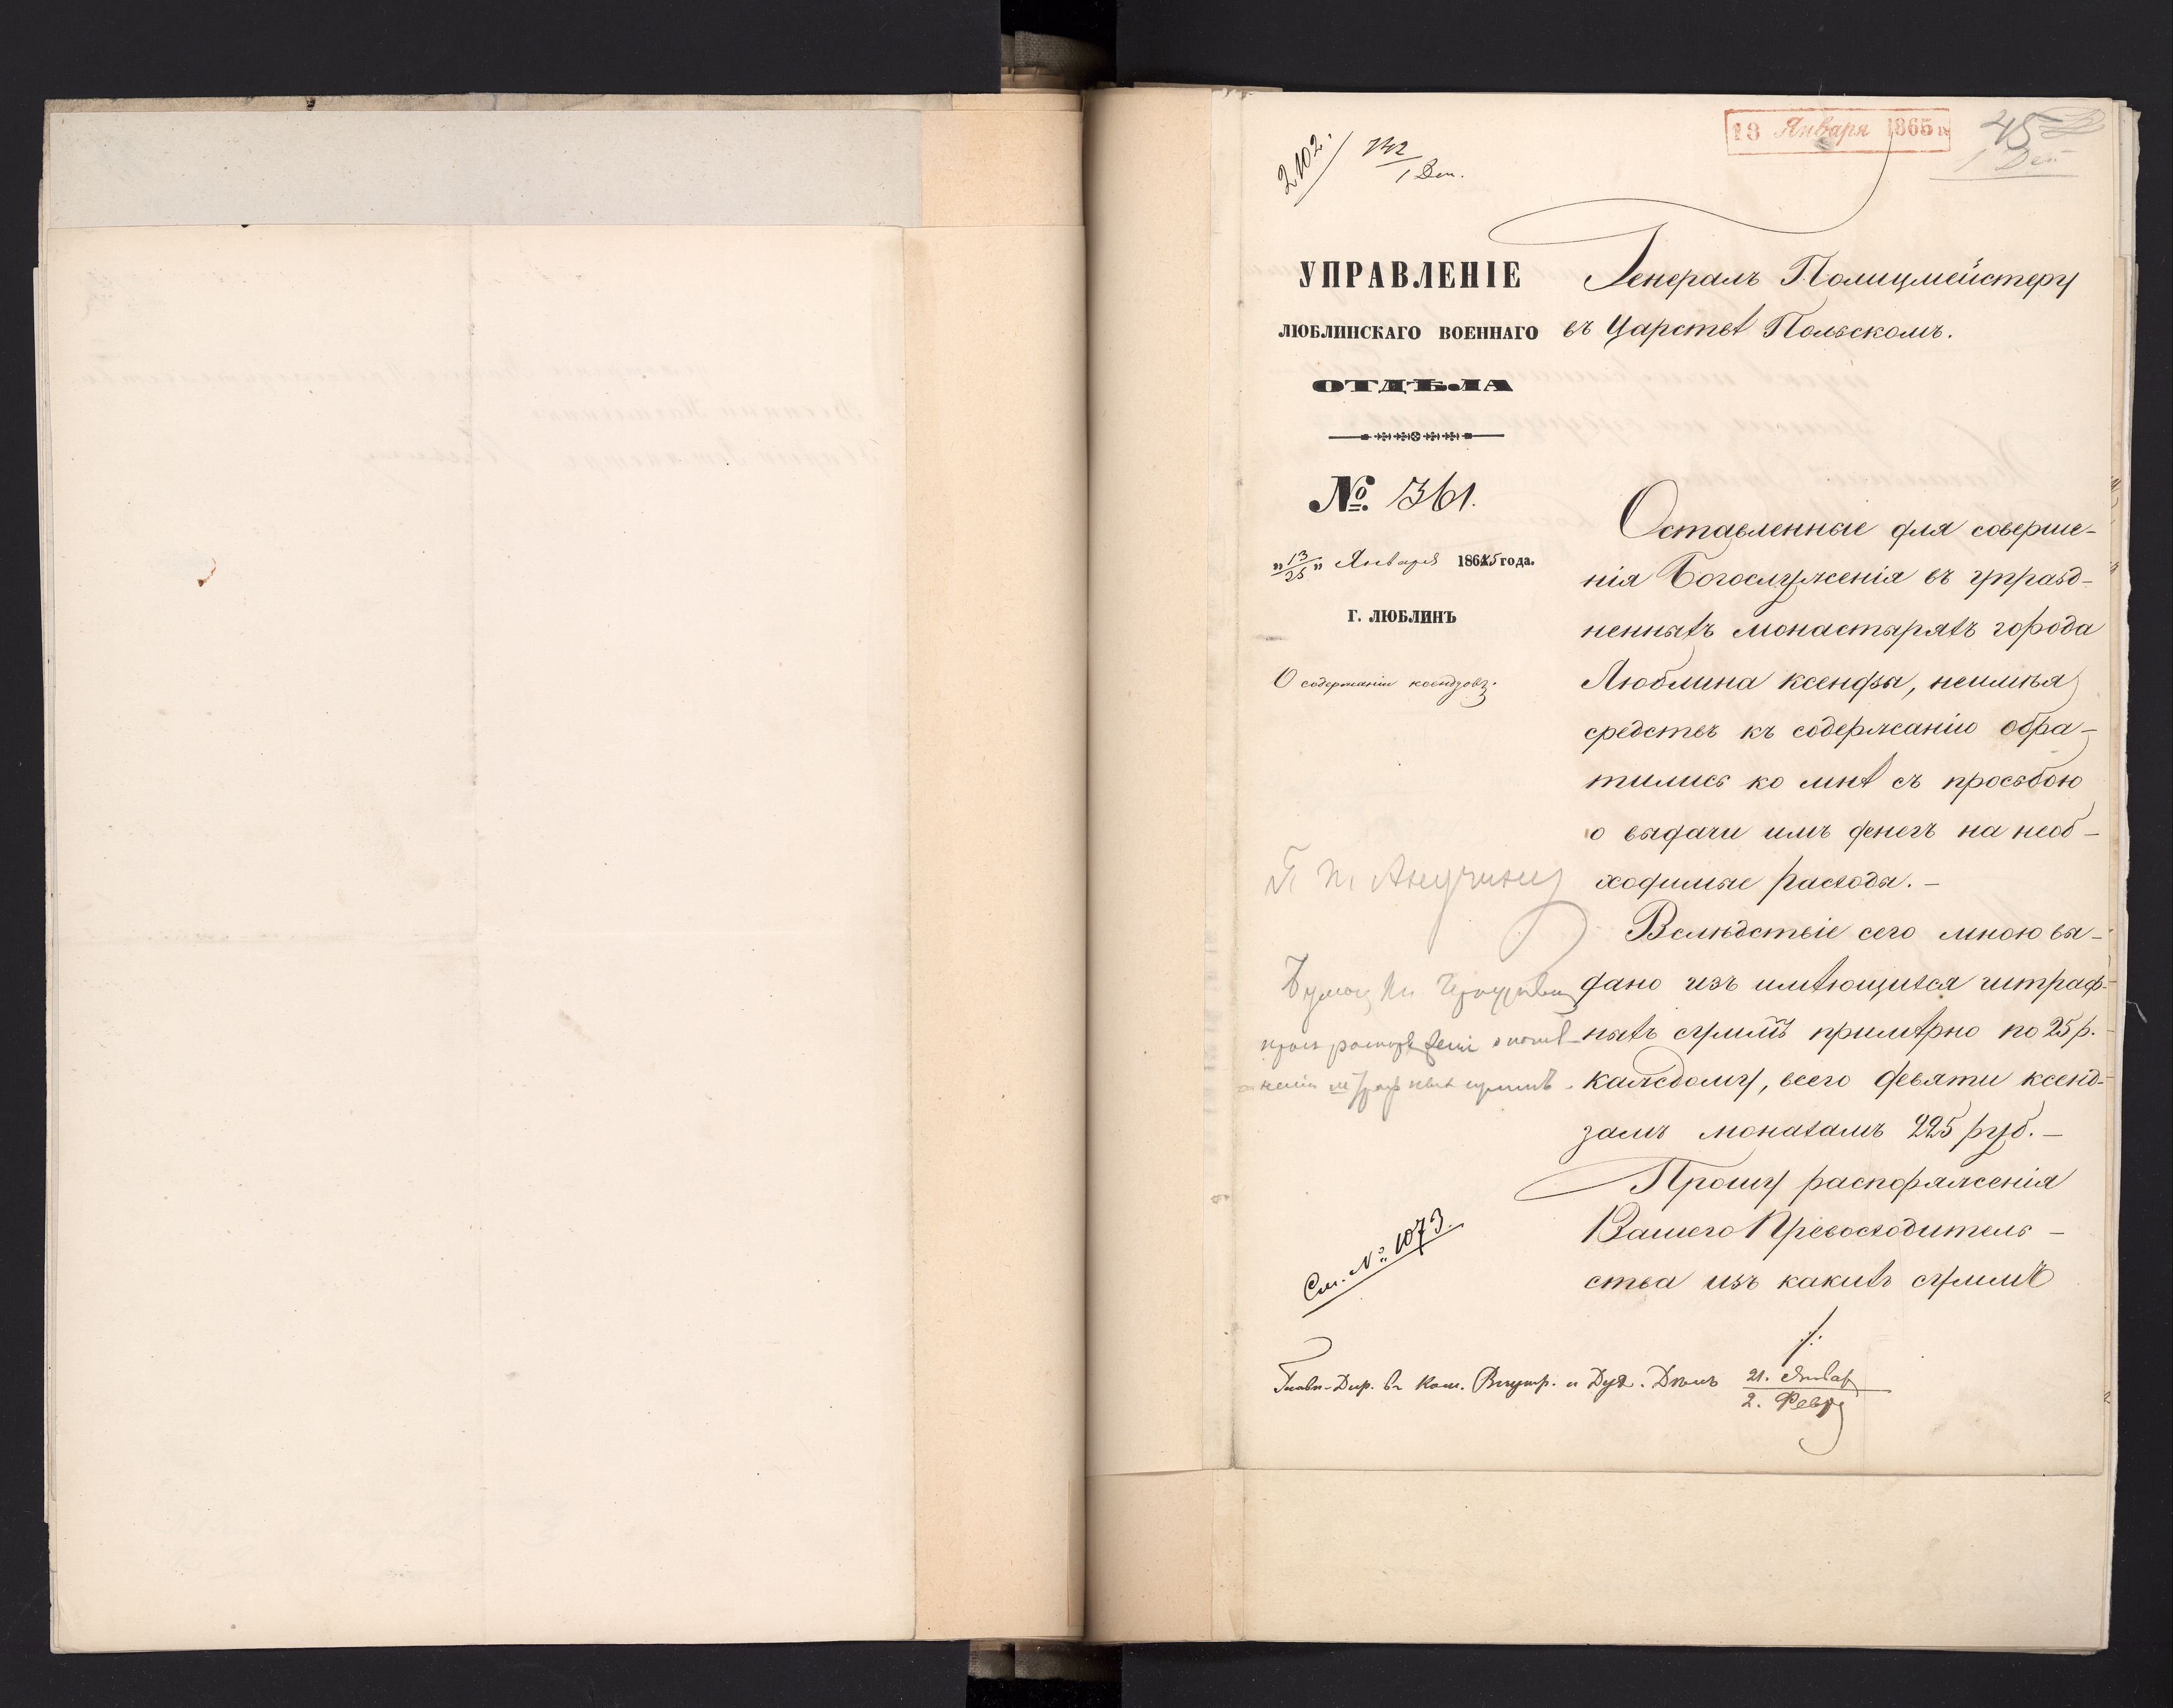 2102.
1 Деп.
18 Января 1865 г.
45
1 Деп
УПРАВЛЕНІЕ
ЛЮБЛИНСКАГО ВОЕННАГО
ОТДѢЛА
№ 361.
„13/25„ Января 1865 года.
Г. ЛЮБЛИНЪ
О содержаніи ксендзовъ.
Генералъ Полицмейстеру
въ Царствѣ Польскомъ.
Оставленные для соверше-
нія Богослуженія въ упразд-
ненныхъ монастыряхъ города
Люблина ксендзы, неимѣя
средствъ къ содержанію обра-
тились ко мнѣ съ просьбою
о выдачи имъ денегъ на необ-
ходимые расходы. —
Вслѣдствіе сего мною вы-
дано изъ имѣющихся штраф-
ныхъ суммъ примѣрно по 25 р.
каждому, всего девяти ксенд-
замъ монахамъ 225 руб. —
Прошу распоряженія
Вашего Превосходитель-
ства изъ какихъ суммъ
См. № 1073.
Главн. Дир. въ Ком. Внутр. и Дух. Дѣлъ 21. Январ
2. Февр